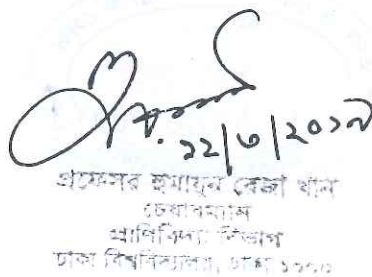 ২২/৩/২০১৯
প্রফেসর হুমায়ুন রেজা খান
চেয়ারম্যান
প্রাণিবিদ্যা বিভাগ
ঢাকা বিশ্ববিদ্যালয়, ঢাকা ১০০০